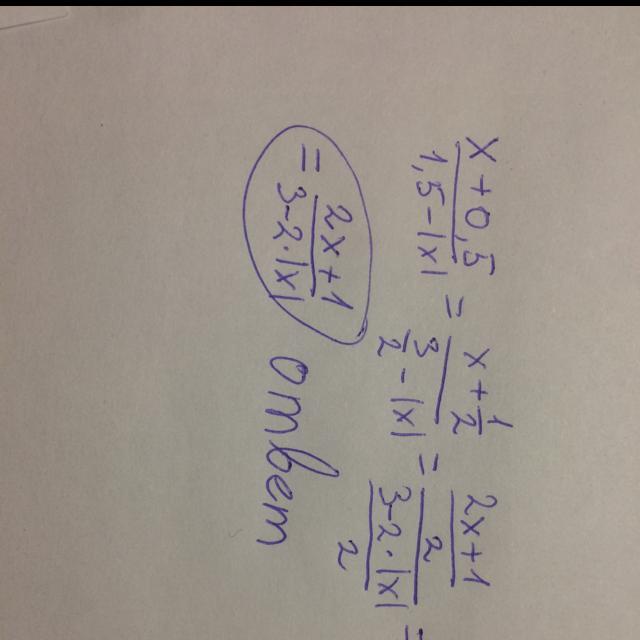 (x+0,5)/(1,5-|x|) = (x+1/2)/(3/2-|x|) = ((2x+1)/2)/((3-2·|x|)/2) =
= (2x+1)/(3-2·|x|) ответ